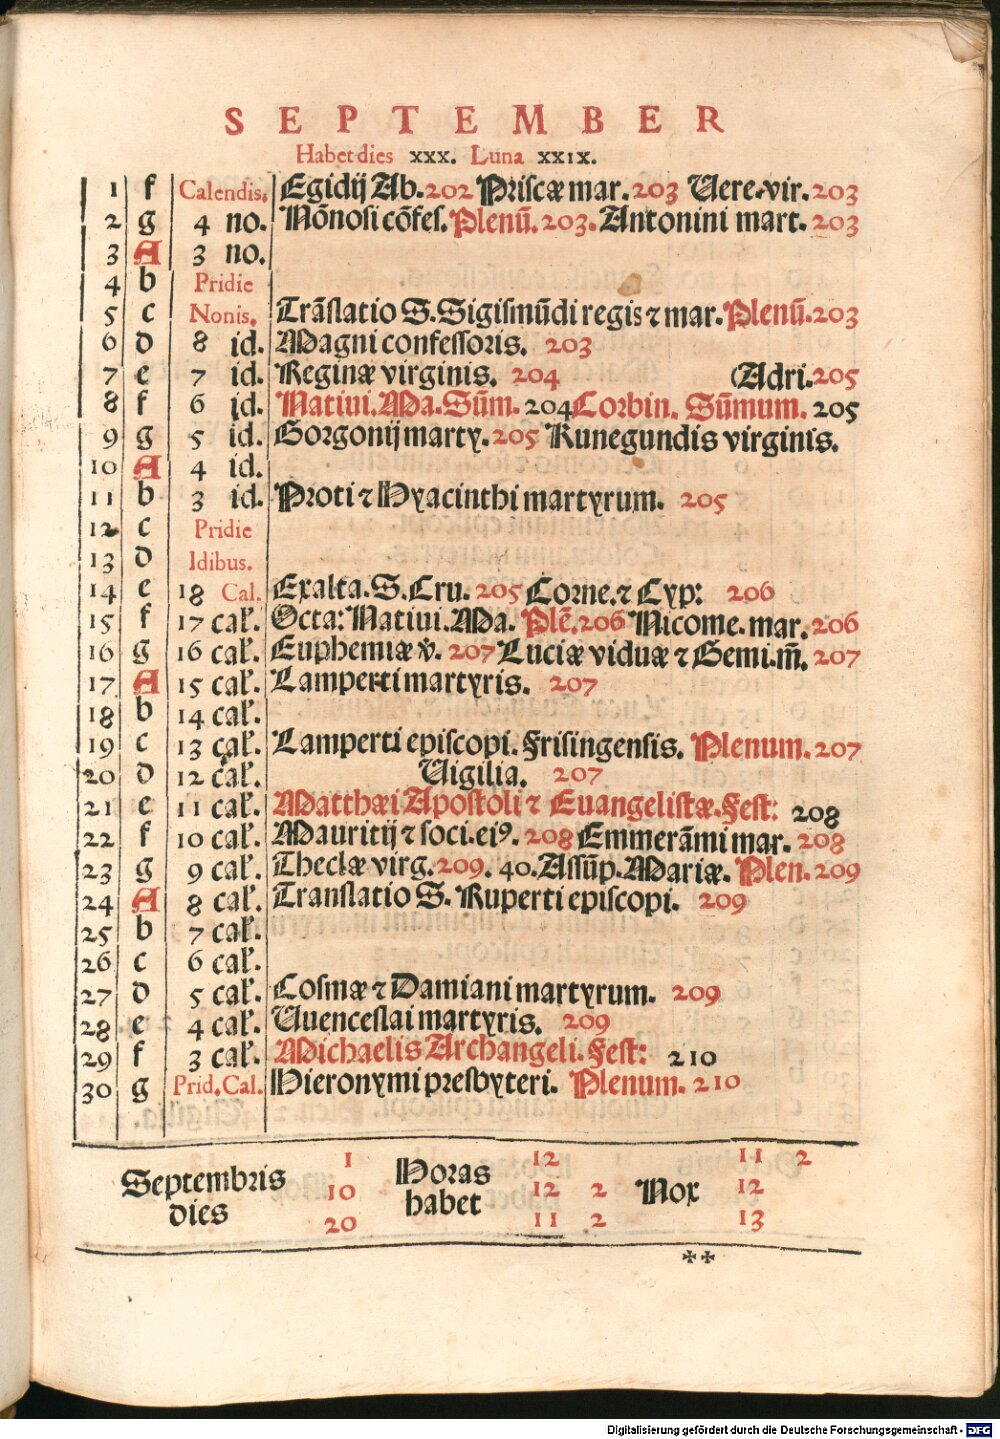 SEPTEMBER
Habet dies xxx. Luna xxix.
1 f Calendis. Egidij Ab. 202 Priscæ mar. 203 Vere. vir. 203
2 g 4 no. Nõnosi cõfes. Plenũ. 203. Antonini mart. 203
3 A 3 no.
4 b Pridie
5 c Nonis. Trãslatio S. Sigismũdi regis ⁊ mar. Plenũ. 203
6 d 8 id. Magni confessoris. 203
7 e 7 id. Reginæ virginis. 204 (Adri. 205
8 f 6 id. Nativi. Ma. Sũm. 204 Corbin. Sũmum. 205
9 g 5 id. Gorgonij marty. 205 Kunegundis virginis.
10 A 4 id.
11 b 3 id. Proti ⁊ Hyacinthi martyrum. 205
12 c Pridie
13 d Idibus.
14 e 18 Cal. Exalta. S. Cru. 205 Corne. ⁊ Cyp: 206
15 f 17 cal. Octa: Nativi. Ma. Plẽ. 206 Nicome. mar. 206
16 g 16 cal. Euphemiæ v̄. 207 Luciæ viduæ ⁊ Gemi. m̃. 207
17 A 15 cal. Lamperti martyris. 207
18 b 14 cal.
19 c 13 cal. Lamperti episcopi. Frisingensis. Plenum. 207
20 d 12 cal. Vigilia. 207
21 e 11 cal. Matthæi Apostoli ⁊ Euangelistæ. Fest: 208
22 f 10 cal. Mauritij ⁊ soci. eiꝰ. 208 Emmerãmi mar. 208
23 g 9 cal. Theclæ virg. 209. 40. Assũp. Mariæ. Plen. 209
24 A 8 cal. Translatio S. Ruperti episcopi. 209
25 b 7 cal.
26 c 6 cal.
27 d 5 cal. Cosmæ ⁊ Damiani martyrum. 209
28 e 4 cal. Vuenceslai martyris. 209
29 f 3 cal. Michaelis Archangeli. Fest: 210
30 g Prid. Cal. Hieronymi presbyteri. Plenum. 210
Septembris dies
1
10
20
Horas habet
12
12 2
11 2
Nox
11 2
12
13
✠✠
Digitalisierung gefördert durch die Deutsche Forschungsgemeinschaft - DFG